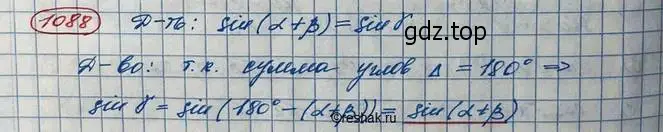 1088 Д-ть: sin(α+β) = sin γ
Д-во: т.к. сумма углов Δ = 180° ⇒
sin γ = sin(180° - (α+β)) = sin(α+β)
©reshak.ru
gdz.top